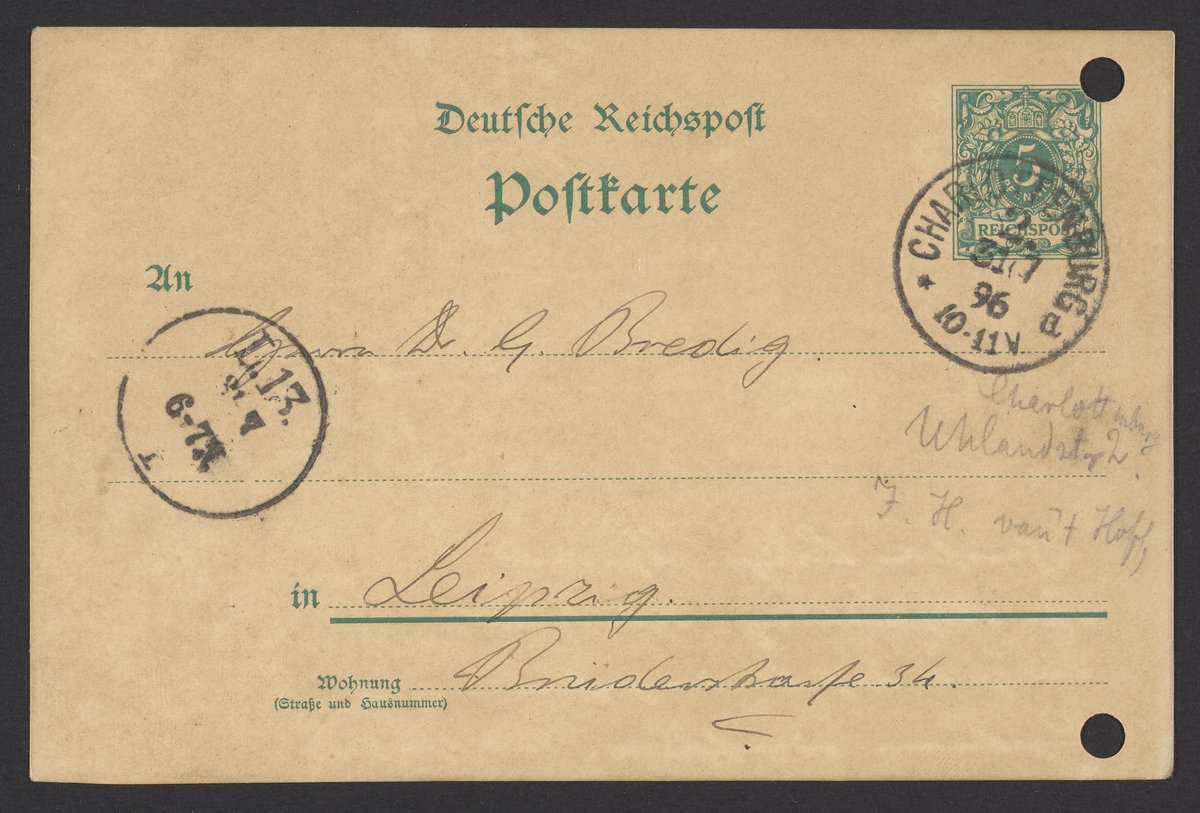 Deutsche Reichspost
Postkarte
5
PFENNIG
REICHSPOST
CHARLOTTENBURG
96
10-11V
An
Herrn Dr. G. Bredig.
L.13.
6-7N
T
Charlottenburg
Uhlandstr 2.
J. H. van't Hoff,
in Leipzig.
Wohnung Brüderstraße 34.
(Straße und Hausnummer)